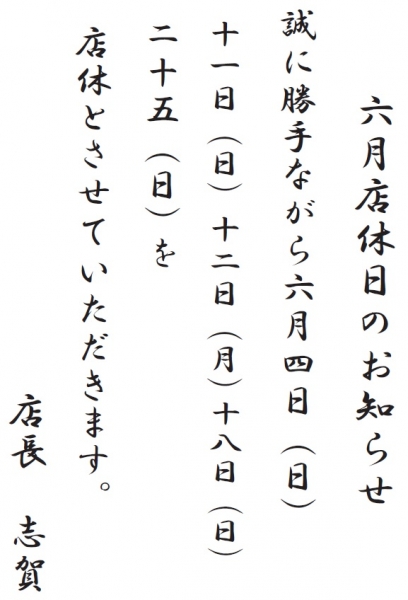 六月店休日のお知らせ
誠に勝手ながら六月四日（日）
十一日（日）十二日（月）十八日（日）
二十五（日）を
店休とさせていただきます。
店長　志賀